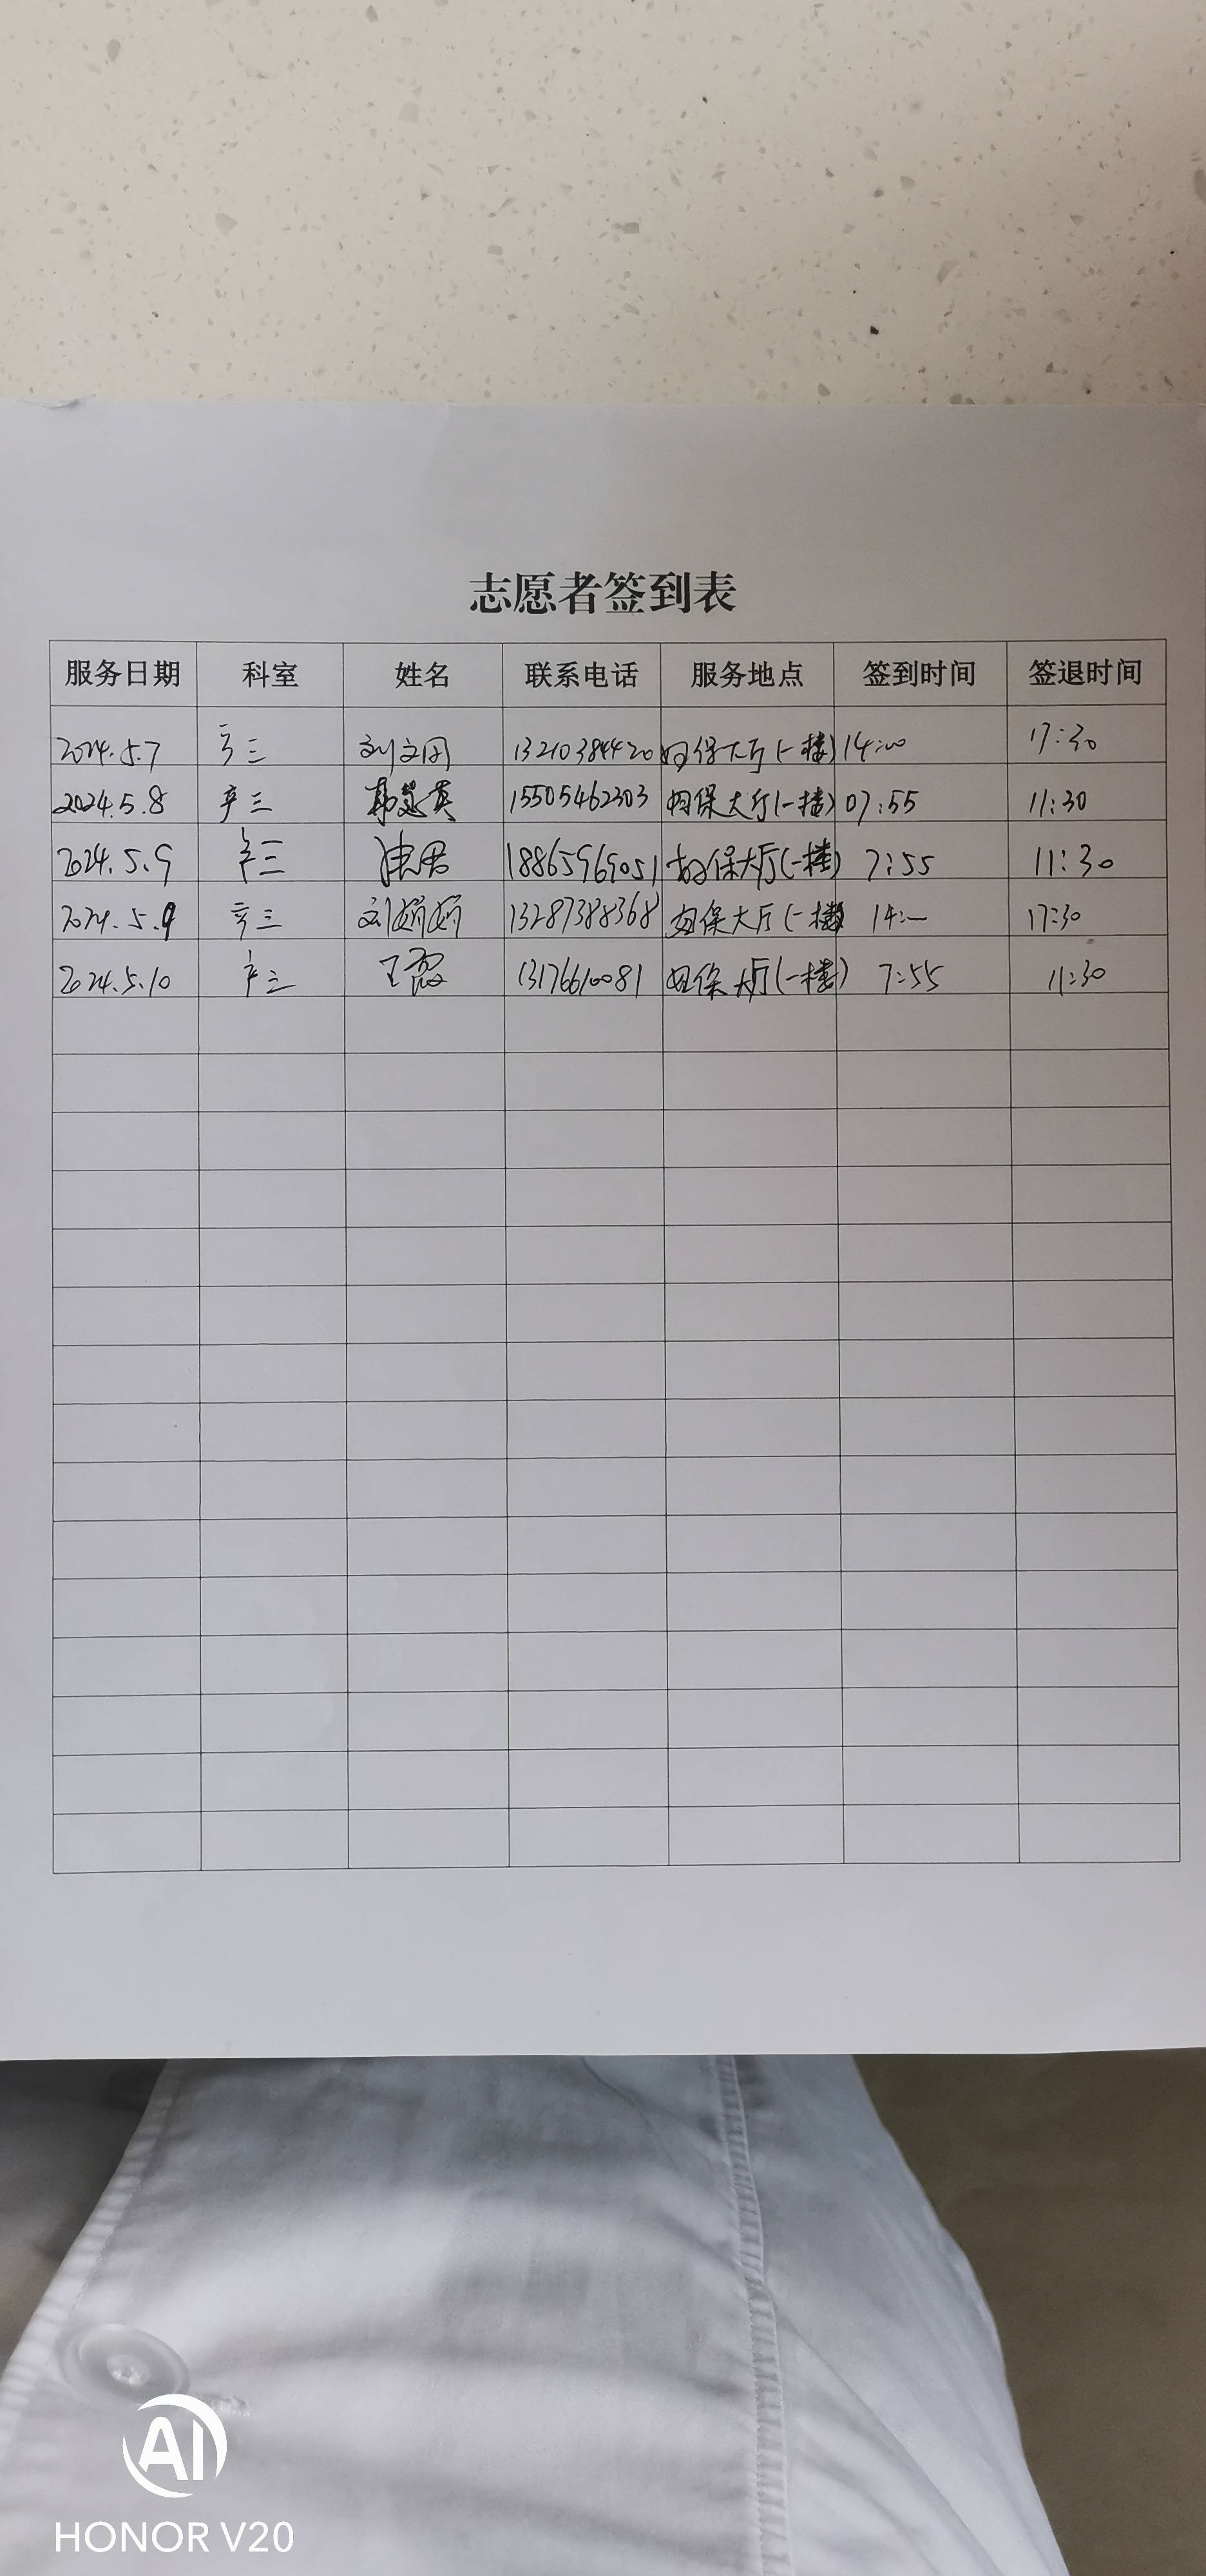 志愿者签到表
服务日期 科室 姓名 联系电话 服务地点 签到时间 签退时间
2024.5.7 产三 刘文 13210384420 妇保大厅(一楼) 14:00 17:30
2024.5.8 产三 英 15505462303 妇保大厅(一楼) 07:55 11:30
2024.5.9 产三 18865969051 妇保大厅(一楼) 7:55 11:30
2024.5.9 产三 刘娇娇 13287388368 妇保大厅(一楼 14:— 17:30
2024.5.10 产三 王霞 13176610081 妇保大厅(一楼) 7:55 11:30
AI
HONOR V20